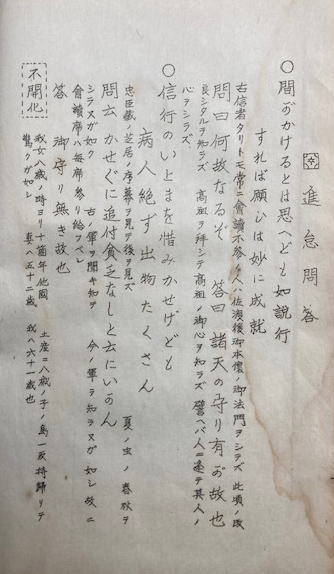 進怠問答
〇間がかけるとは思へども如説行
すれば願ひは妙に成就
古信者タリトモ常ニ會講不參ノ人ハ佐渡後御本懐ノ御法門ヲシラズ 此頃ノ改
良シタルヲ知ラズ 高祖ヲ拜シテ高祖ノ御心ヲ知ラズ 譬ヘバ人ニ逢テ其人ノ
心ヲシラズ
問曰何故なるぞ 答曰 諸天の守り有が故也
〇信行のいとまを惜みかせげども
病人絶ず出物たくさん
忠臣蔵ノ芝居ノ序幕ヲ見テ後ヲ見ズ 夏ノ虫ノ春秋ヲ
シラヌガ如ク 古ノ軍ヲ聞キ知テ 今ノ軍ヲ知ラヌガ如シ 故ニ
會講席ハ毎席參リ給フベシ
問云 かせぐに追付貧乏なしと云にいかん
答 御守り無き故也
不開化
我女八歳ノ時ヨリ十箇年他國 土産ニ八歳ノ子ノ島一反持歸リテ
驚クが如シ 妻ハ五十二歳 我ハ六十一歳也